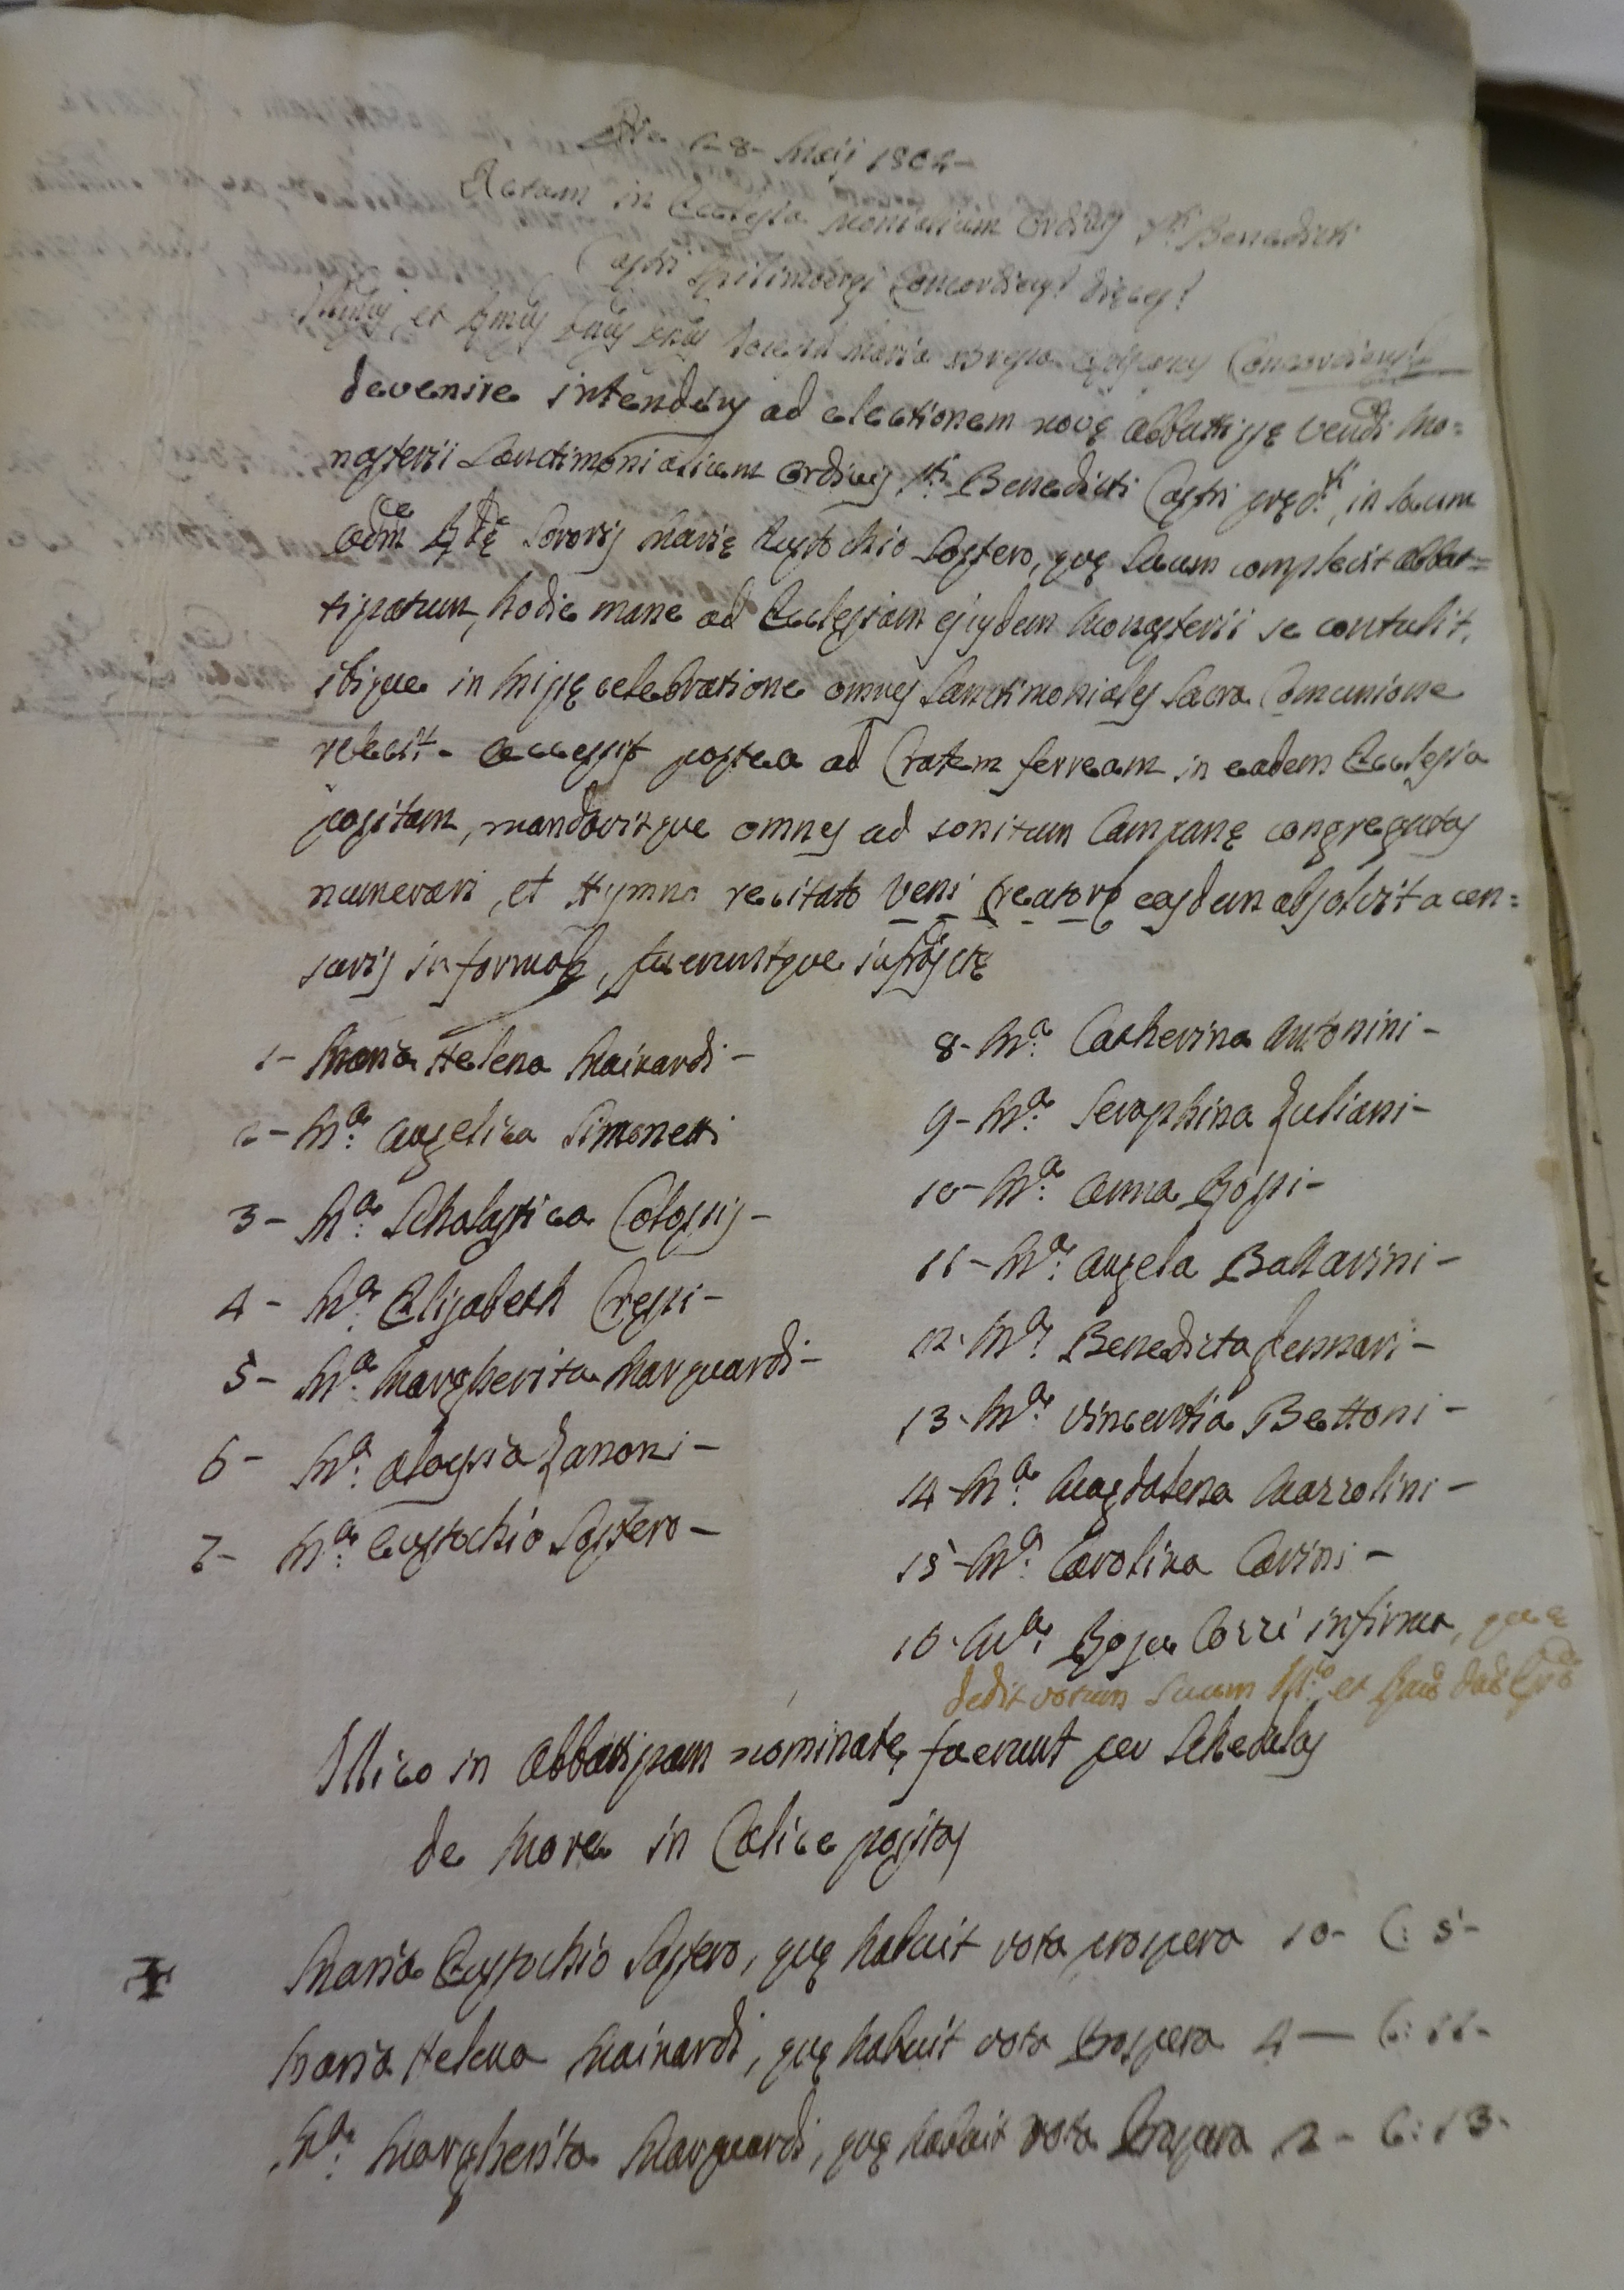 Die 18 Maij 1802 -
Actum in Ecclesia Monialium Ordinis Sti Benedicti
Castri Spilimbergi Concordiens: Dięces:
Illmus, et Rmus Dnus Dnus Joseph Maria Bressa Episcopus Concordiens:
devenire intendens ad electionem novę Abbatissę Vendi Mo=
nasterii Sanctimonialium Ordinis Sti Benedicti Castri pręd.ti, in locum
Adm Rdę Sororis Marię Eustochio Sostero, quę suum complevit abbat=
tissatum, hodie mane ad Ecclesiam ejusdem Monasterii se contulit,
ibique in Missę celebratione omnes Sanctimoniales Sacra Comunione
refecit - Accessit postea ad Cratem ferream in eadem Ecclesia
positam, mandavitque omnes ad sonitum Campanę congregatas
numerari, et Hymno recitato Veni Creatore easdem absolvit a cen=
suris in forma, fueruntque infrasctę
1- Maria Helena Mainardi -
2- Ma: Angelica Simonetti
3- Ma: Scholastica Colossis -
4- Ma: Elisabeth Cressi -
5- Ma: Margherita Marquardi -
6- Ma: Aloysia Zanoni -
7- Ma: Eustochio Sostero -
8- Ma: Catherina Antonini -
9- Ma: Seraphina Zuliani -
10- Ma: Anna Rossi -
11- Ma: Angela Ballarini -
12- Ma: Benedicta Zennari -
13- Ma: Vincentia Bettoni -
14- Ma: Magdalena Mazzolini -
15- Ma: Carolina Carini -
16- Ma: Rosa Cozzi inferma, quę
dedit votum suum Illmo et Rmo
Illico in Abbatissam nominatę fuerunt per Schedulas
de more in Calice positas
Maria Eustochio Sostero, quę habuit vota prospera 10- C: 5-
Maria Helena Mainardi, quę habuit vota prospera 4 - C: 11-
Ma: Margherita Marquardi, quę habuit vota prospera 2 - C: 13-